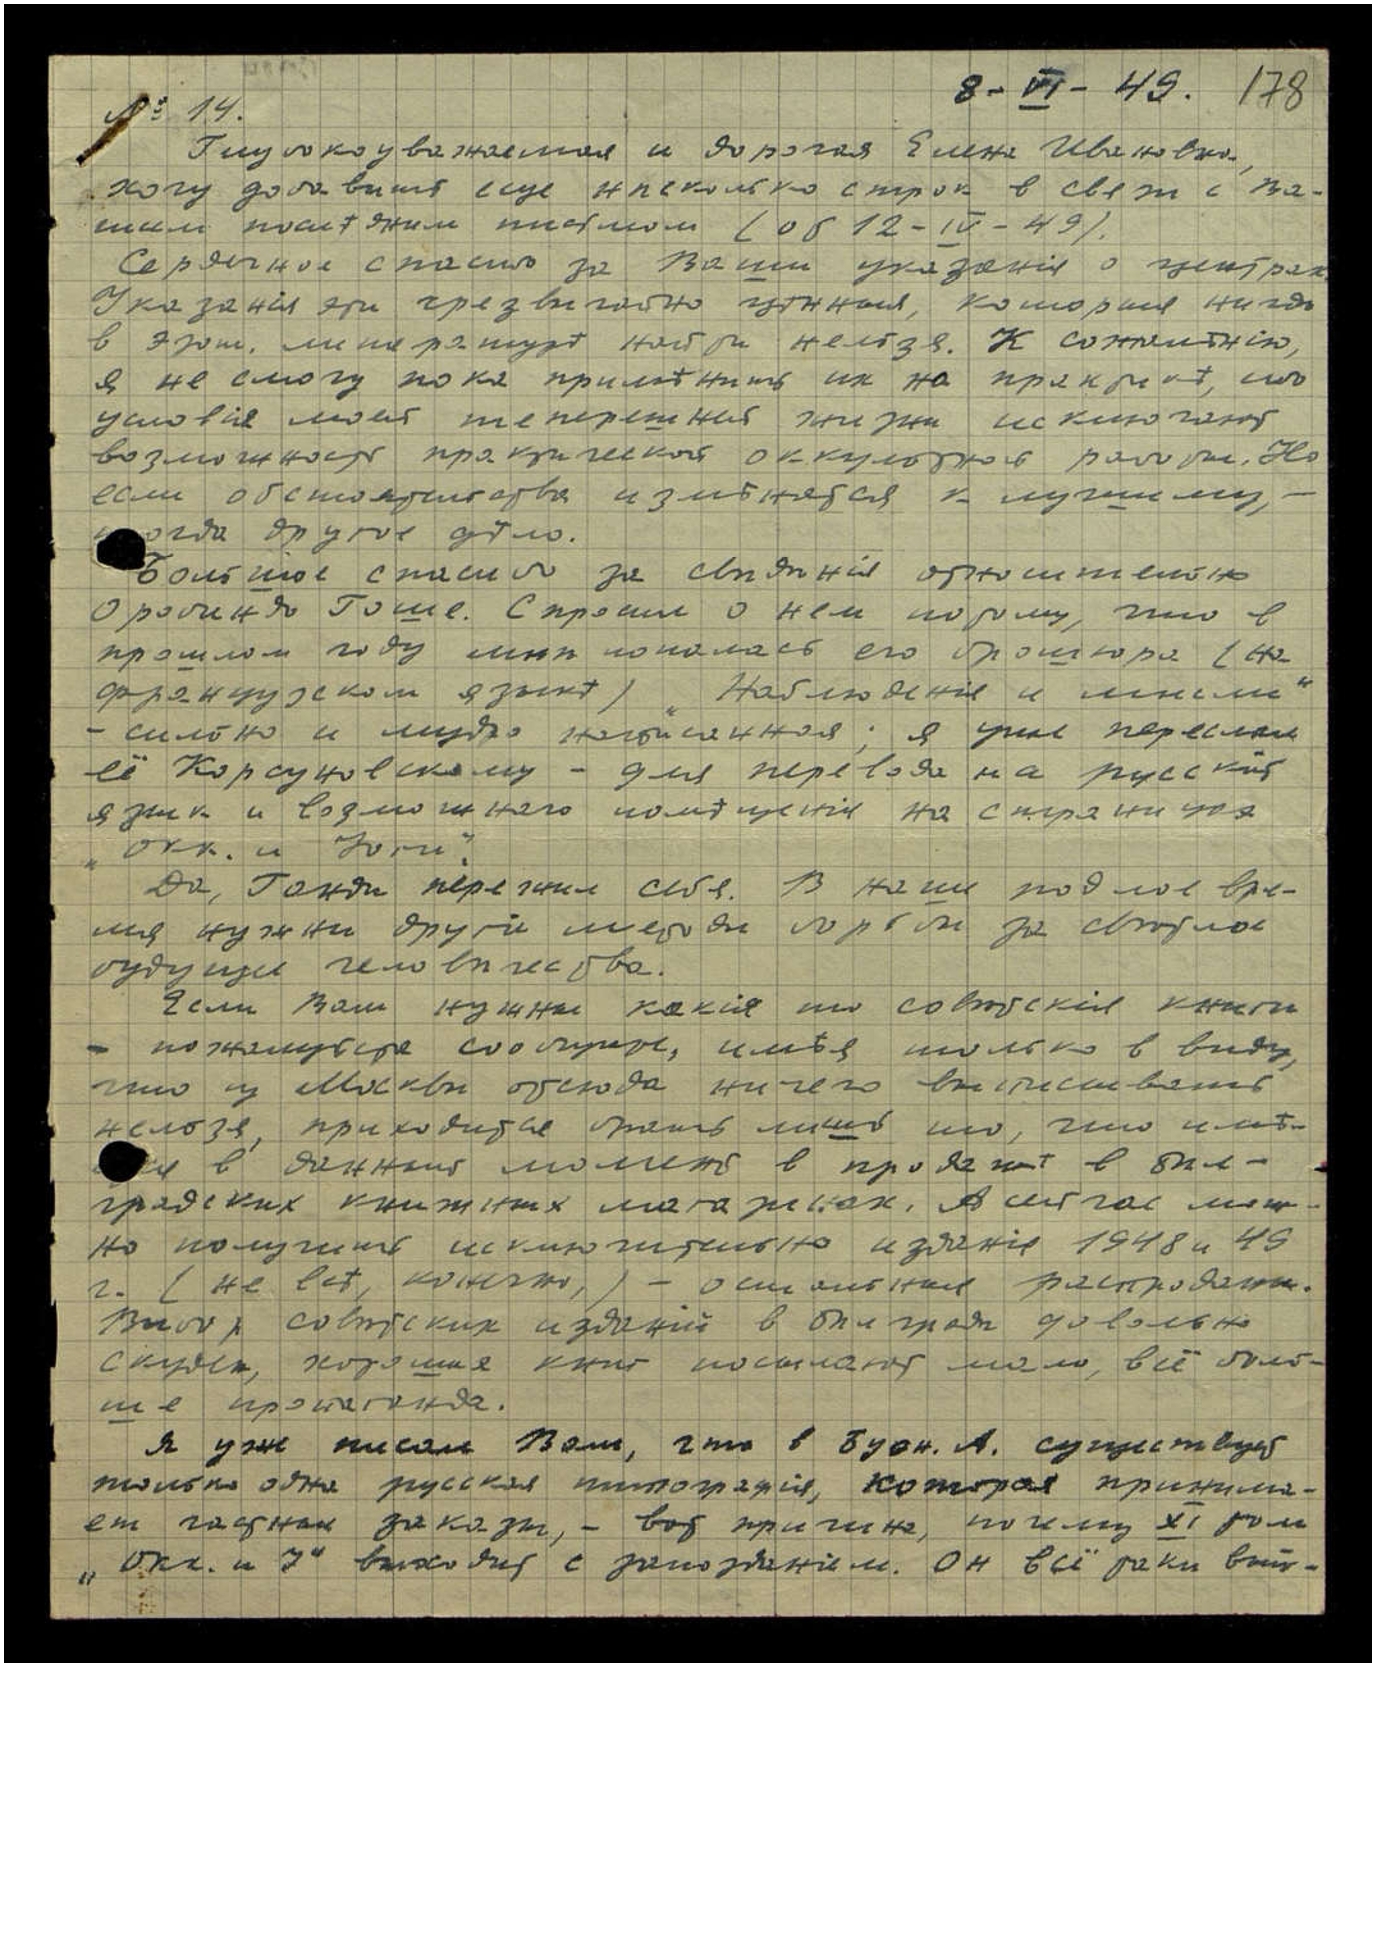 8-VI-49. 178
№ 14.
Глубокоуважаемая и дорогая Елена Ивановна,
хочу добавить еще нѣсколько строк в связи с Ва-
шим послѣдним письмом (от 12-IV-49).
Сердечное спасибо за Ваши указанія о центрах.
Указанія эти чрезвычайно цѣнныя, которыя нигдѣ
в эзот. литературѣ найти нельзя. К сожалѣнію,
я не смогу пока примѣнить их на практикѣ, ибо
условія моей теперешней жизни исключают
возможность практической оккультной работы. Но
если обстоятельства измѣнятся к лучшему, -
тогда другое дѣло.
Большое спасибо за свѣдѣнія относительно
Оробиндо Гоше. Спросил о нем потому, что в
прошлом году мнѣ попалась его брошюра (на
французском языкѣ) „Наблюденія и мысли"
- сильно и мудро написанная; я уже переслал
её Корсуновскому - для перевода на русскій
язык и возможнаго помѣщенія на страницах
„Окк. и Йоги".
Да, Ганди пережил себя. В наше подлое вре-
мя нужны другіе методы борьбы за свѣтлое
будущее человѣчества.
Если Вам нужны какія то совѣтскія книги
- пожалуйста сообщите, имѣя только в виду,
что из Москвы отсюда ничего выписывать
нельзя, приходится брать лишь то, что имѣ-
ется в данный момент в продажѣ в бѣл-
градских книжных магазинах. А сейчас мож-
но получить исключительно изданія 1948 и 49
г. (не всѣ, конечно,) - остальныя распроданы.
Выбор совѣтских изданій в Бѣлградѣ довольно
скуден, хороших книг посылают мало, всё боль-
ше пропаганда.
Я уже писал Вам, что в Буэн. А. существует
только одна русская типографія, которая принима-
ет частные заказы, - вот причина, почему XI том
„Окк. и Й" выходит с запозданіем. Он всё таки вый-